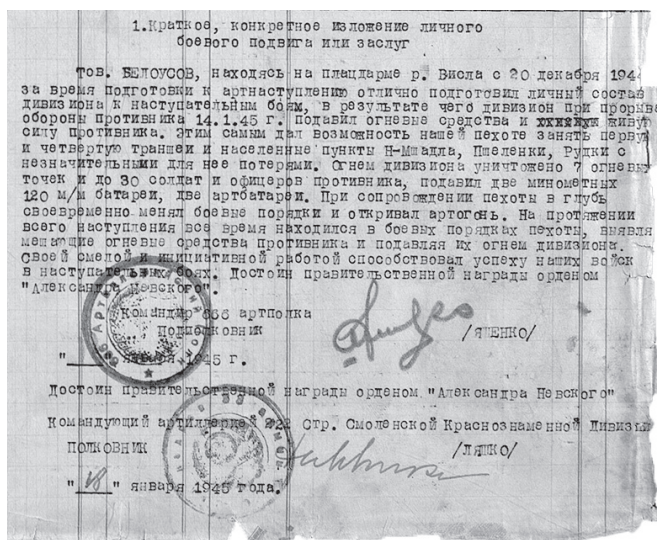 1.Краткое, конкретное изложение личного
боевого подвига или заслуг
тов. БЕЛОУСОВ, находясь на плацдарме р. Висла с 20 декабря 194
за время подготовки к артнаступлению отлично подготовил личный состав
дивизиона к наступательным боях, в результате чего дивизион при прорыве
обороны противника 14.1.45 г. подавил огневые средства и живую
силу противника. Этим самым дал возможность нашей пехоте занять первую
и четвертую траншеи и населенные пункты Н-Мшадла, Пшеленки, Рудки с
незначительными для нее потерями. Огнем дивизиона уничтожено 7 огневых
точек и до 30 солдат и офицеров противника, подавил две минометных
120 м/м батареи, две артбатареи. При сопровождении пехоты в глубь
своевременно менял боевые порядки и открывал артогонь. На протяжении
всего наступления все время находился в боевых порядках пехоты, выявляя
мешающие огневые средства противника и подавляя их огнем дивизиона.
Своей смелой и инициативной работой способствовал успеху наших войск
в наступательных боях. Достоин правительственной награды орденом
"Александра Невского".
Командир 666 артполка
Подполковник /ЯЦЕНКО/
" " января 1945 г.
Достоин правительственной награды орденом "Александра Невского"
Командующий артиллерией 222 Стр. Смоленской Краснознаменной Дивизии
ПОЛКОВНИК /ЛЯШКО/
"18" января 1945 года.